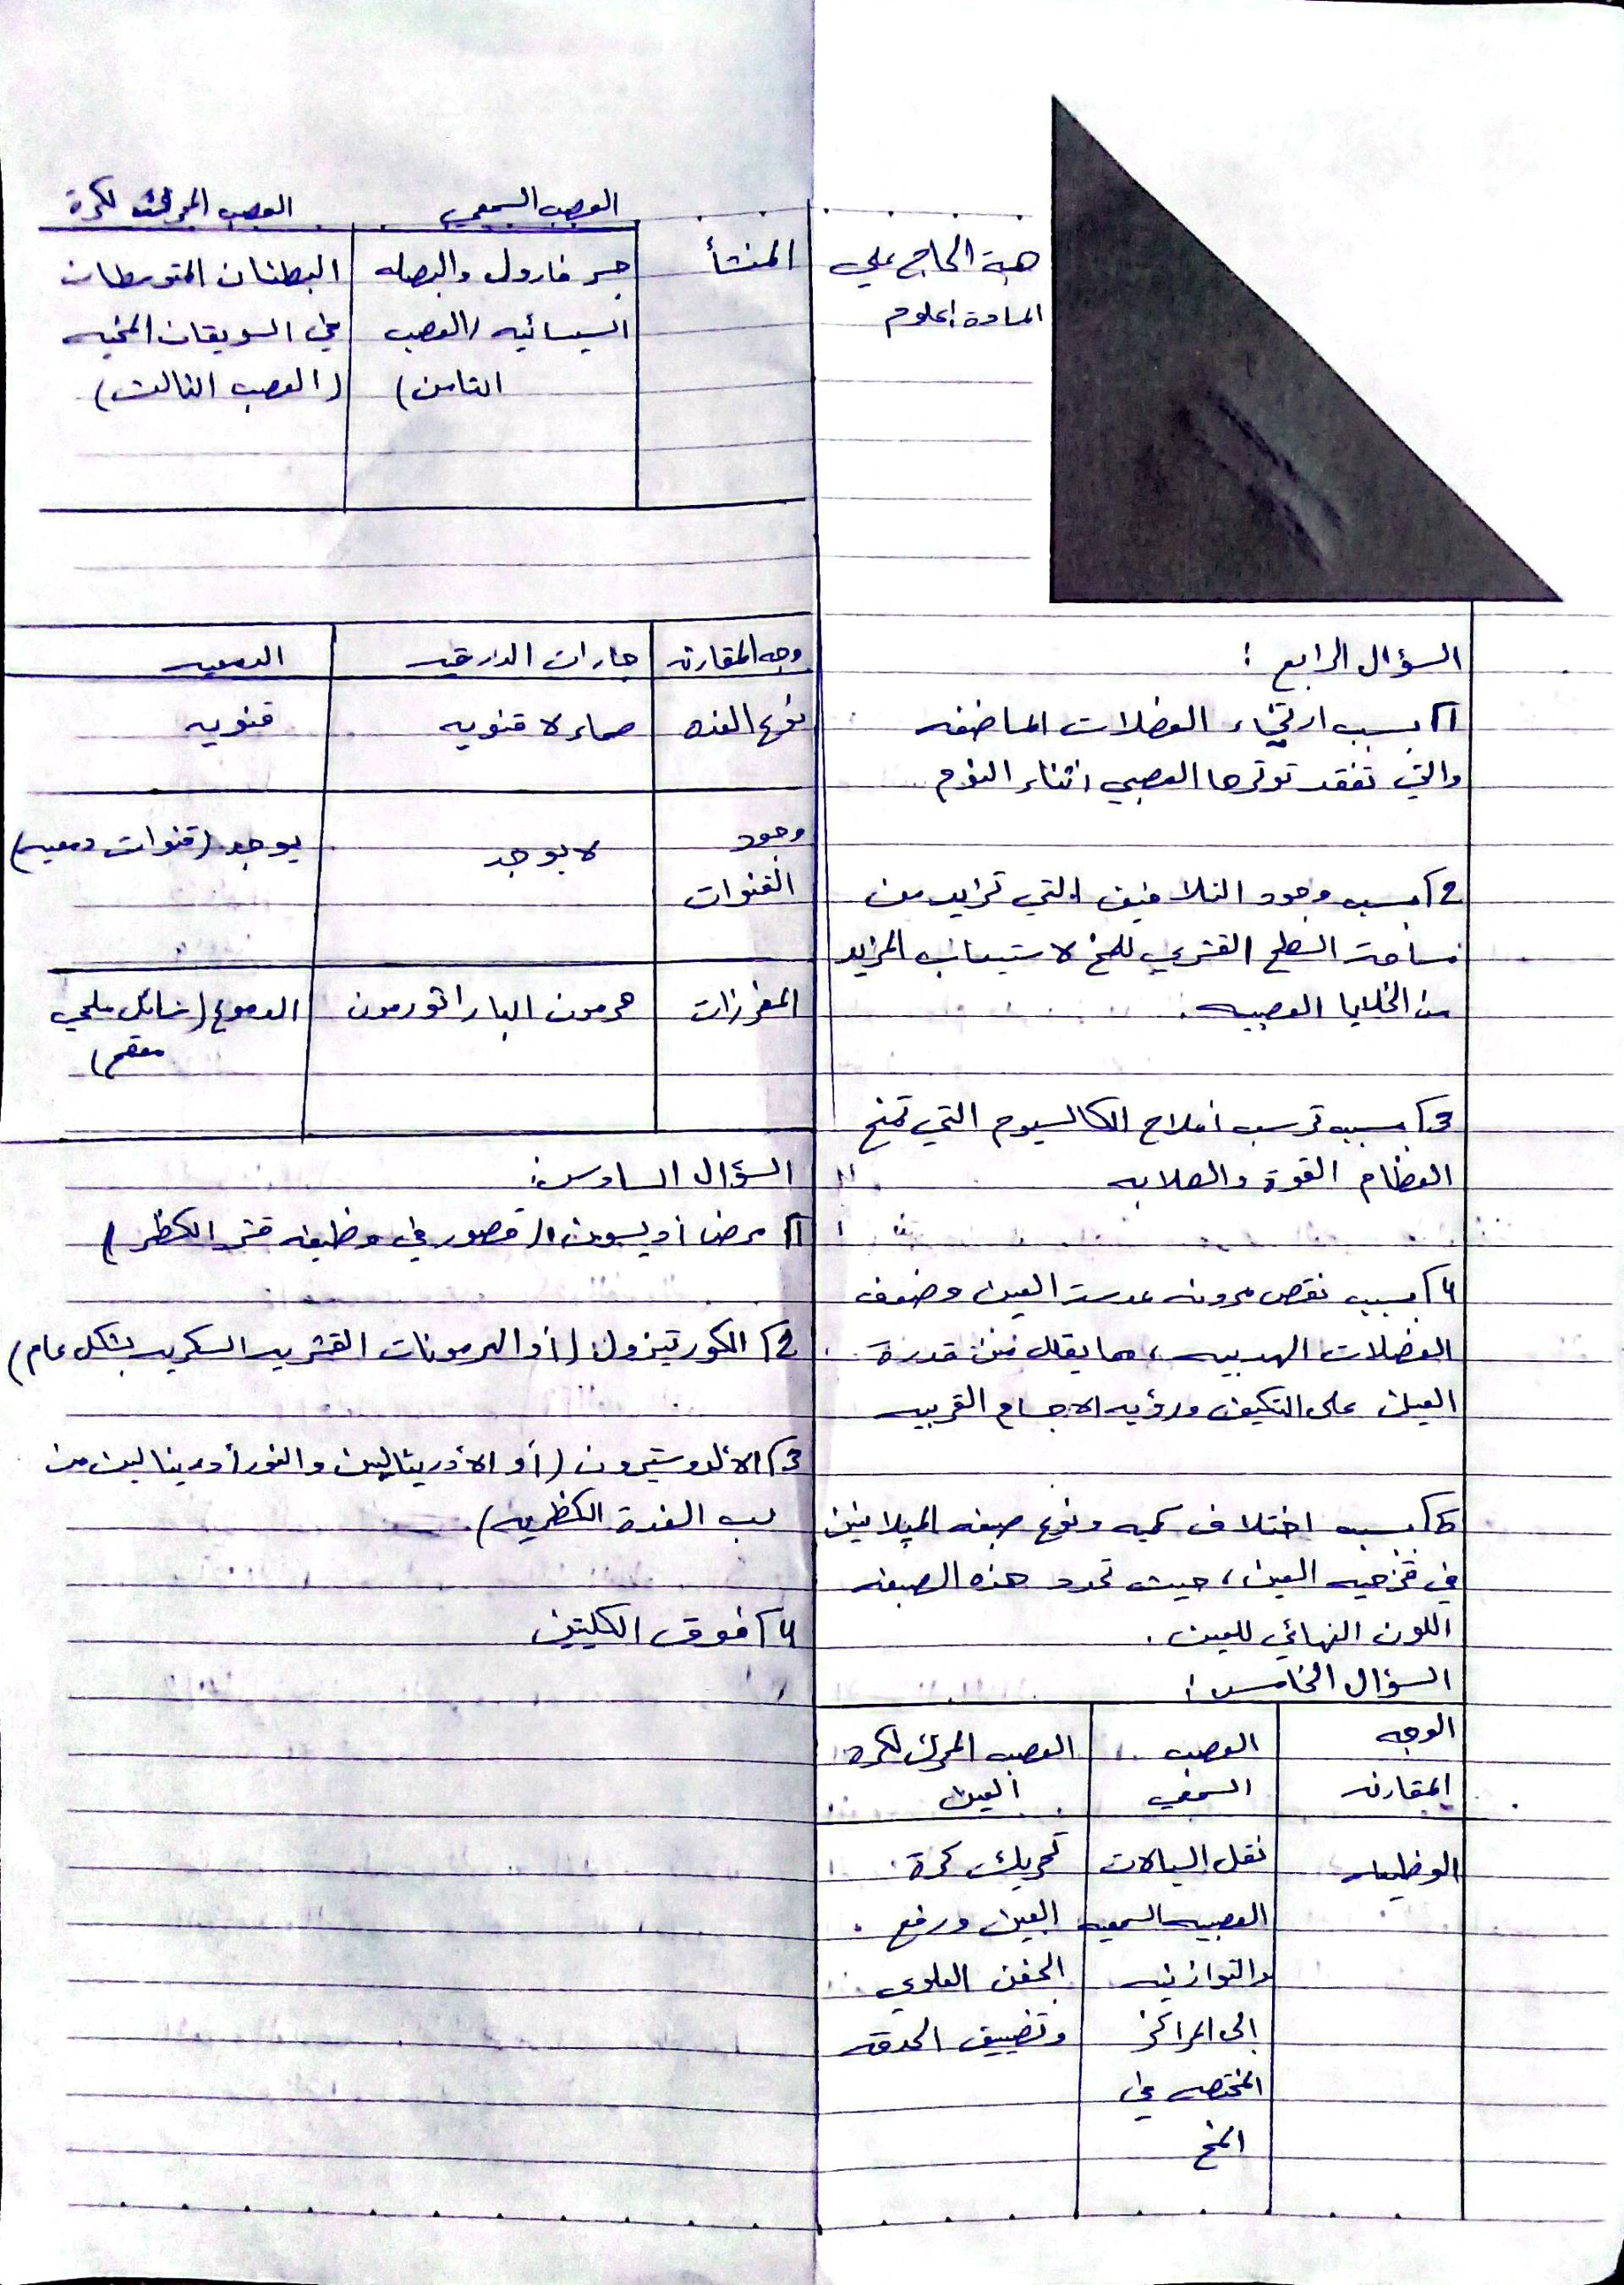 هبة الحاج علي
المادة: علوم
السؤال الرابع:
1) بسبب ارتخاء العضلات الماضغه
والتي تفقد توترها العصبي اثناء النوم
2) بسبب وجود التلافيف التي تزيد من
مساحة السطح القشري للمخ لاستيعاب المزيد
من الخلايا العصبيه.
3) بسبب ترسب أملاح الكالسيوم التي تمنح
العظام القوة والصلابه
4) بسبب نقص مرونه عدسة العين وضعف
العضلات الهدبيه، مما يقلل من قدرة
العين على التكيف ورؤيه الاجسام القريبه
5) بسبب اختلاف كميه ونوع صبغه الميلانين
في قزحيه العين، حيث تحدد هذه الصبغه
اللون النهائي للعين.
السؤال الخامس:
الوجه العصب العصب المحرك لكرة
المقارنه السمعي العين
الوظيفه نقل السيالات تحريك كرة
العصبيه السمعيه العين ورفع
والتوازنيه الجفن العلوي
إلى المراكز وتضييق الحدقه
المختصه في
المخ
العصب السمعي العصب المحرك لكرة
المنشأ جسر فارول والبصله البطنان المتوسطان
السيسائيه (العصب في السويقات المخيه
الثامن) (العصب الثالث)
وجه المقارنه جارات الدرقيه الدمعيه
نوع الغده صماء لا قنويه قنويه
وجود لا يوجد يوجد (قنوات دمعيه)
القنوات
المفرزات هرمون الباراثورمون الدموع (سائل ملحي
معقم)
السؤال السادس:
1) مرض أديسون (قصور في وظيفه قشر الكظر)
2) الكورتيزول (أو الهرمونات القشريه السكريه بشكل عام)
3) الألدوستيرون (أو الأدرينالين والنورأدرينالين من
لب الغدة الكظريه).
4) فوق الكليتين